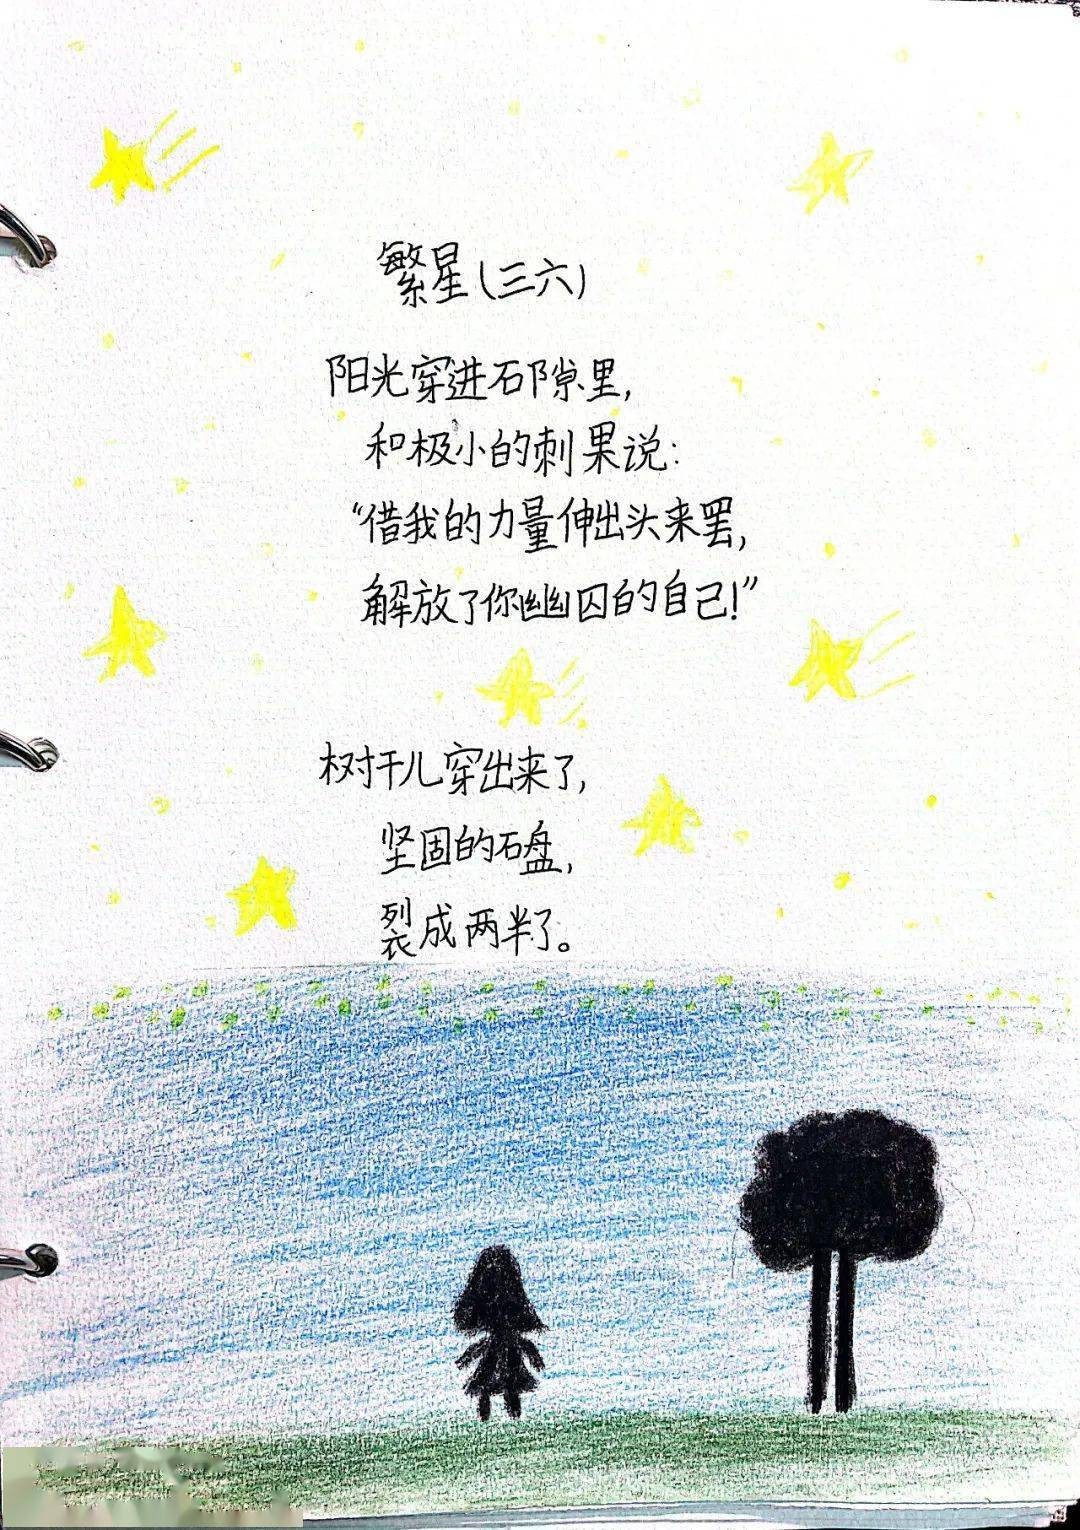 繁星(三六)
阳光穿进石隙里,
和极小的刺果说:
“借我的力量伸出头来罢,
解放了你幽囚的自己!”
树干儿穿出来了,
坚固的石盘,
裂成两半了。